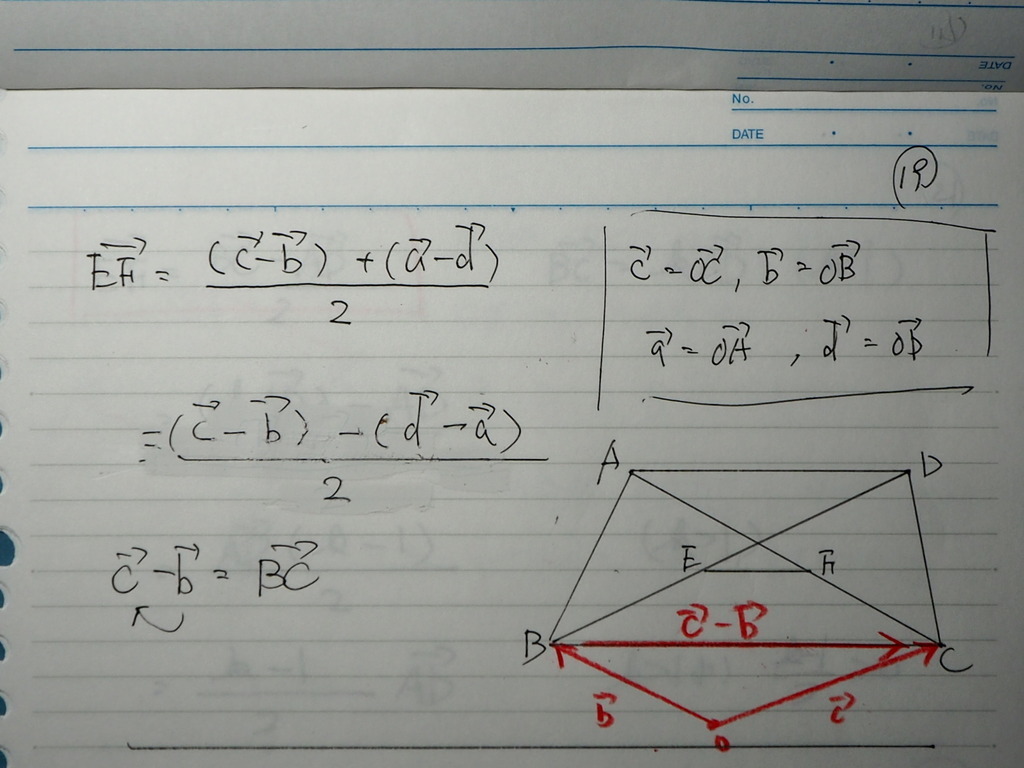 No.
DATE
19
EF = (c - b) + (a - d)
2
c = OC, b = OB
a = OA, d = OD
= (c - b) - (d - a)
2
c - b = BC
A
D
E
F
c - b
B
C
b
c
O